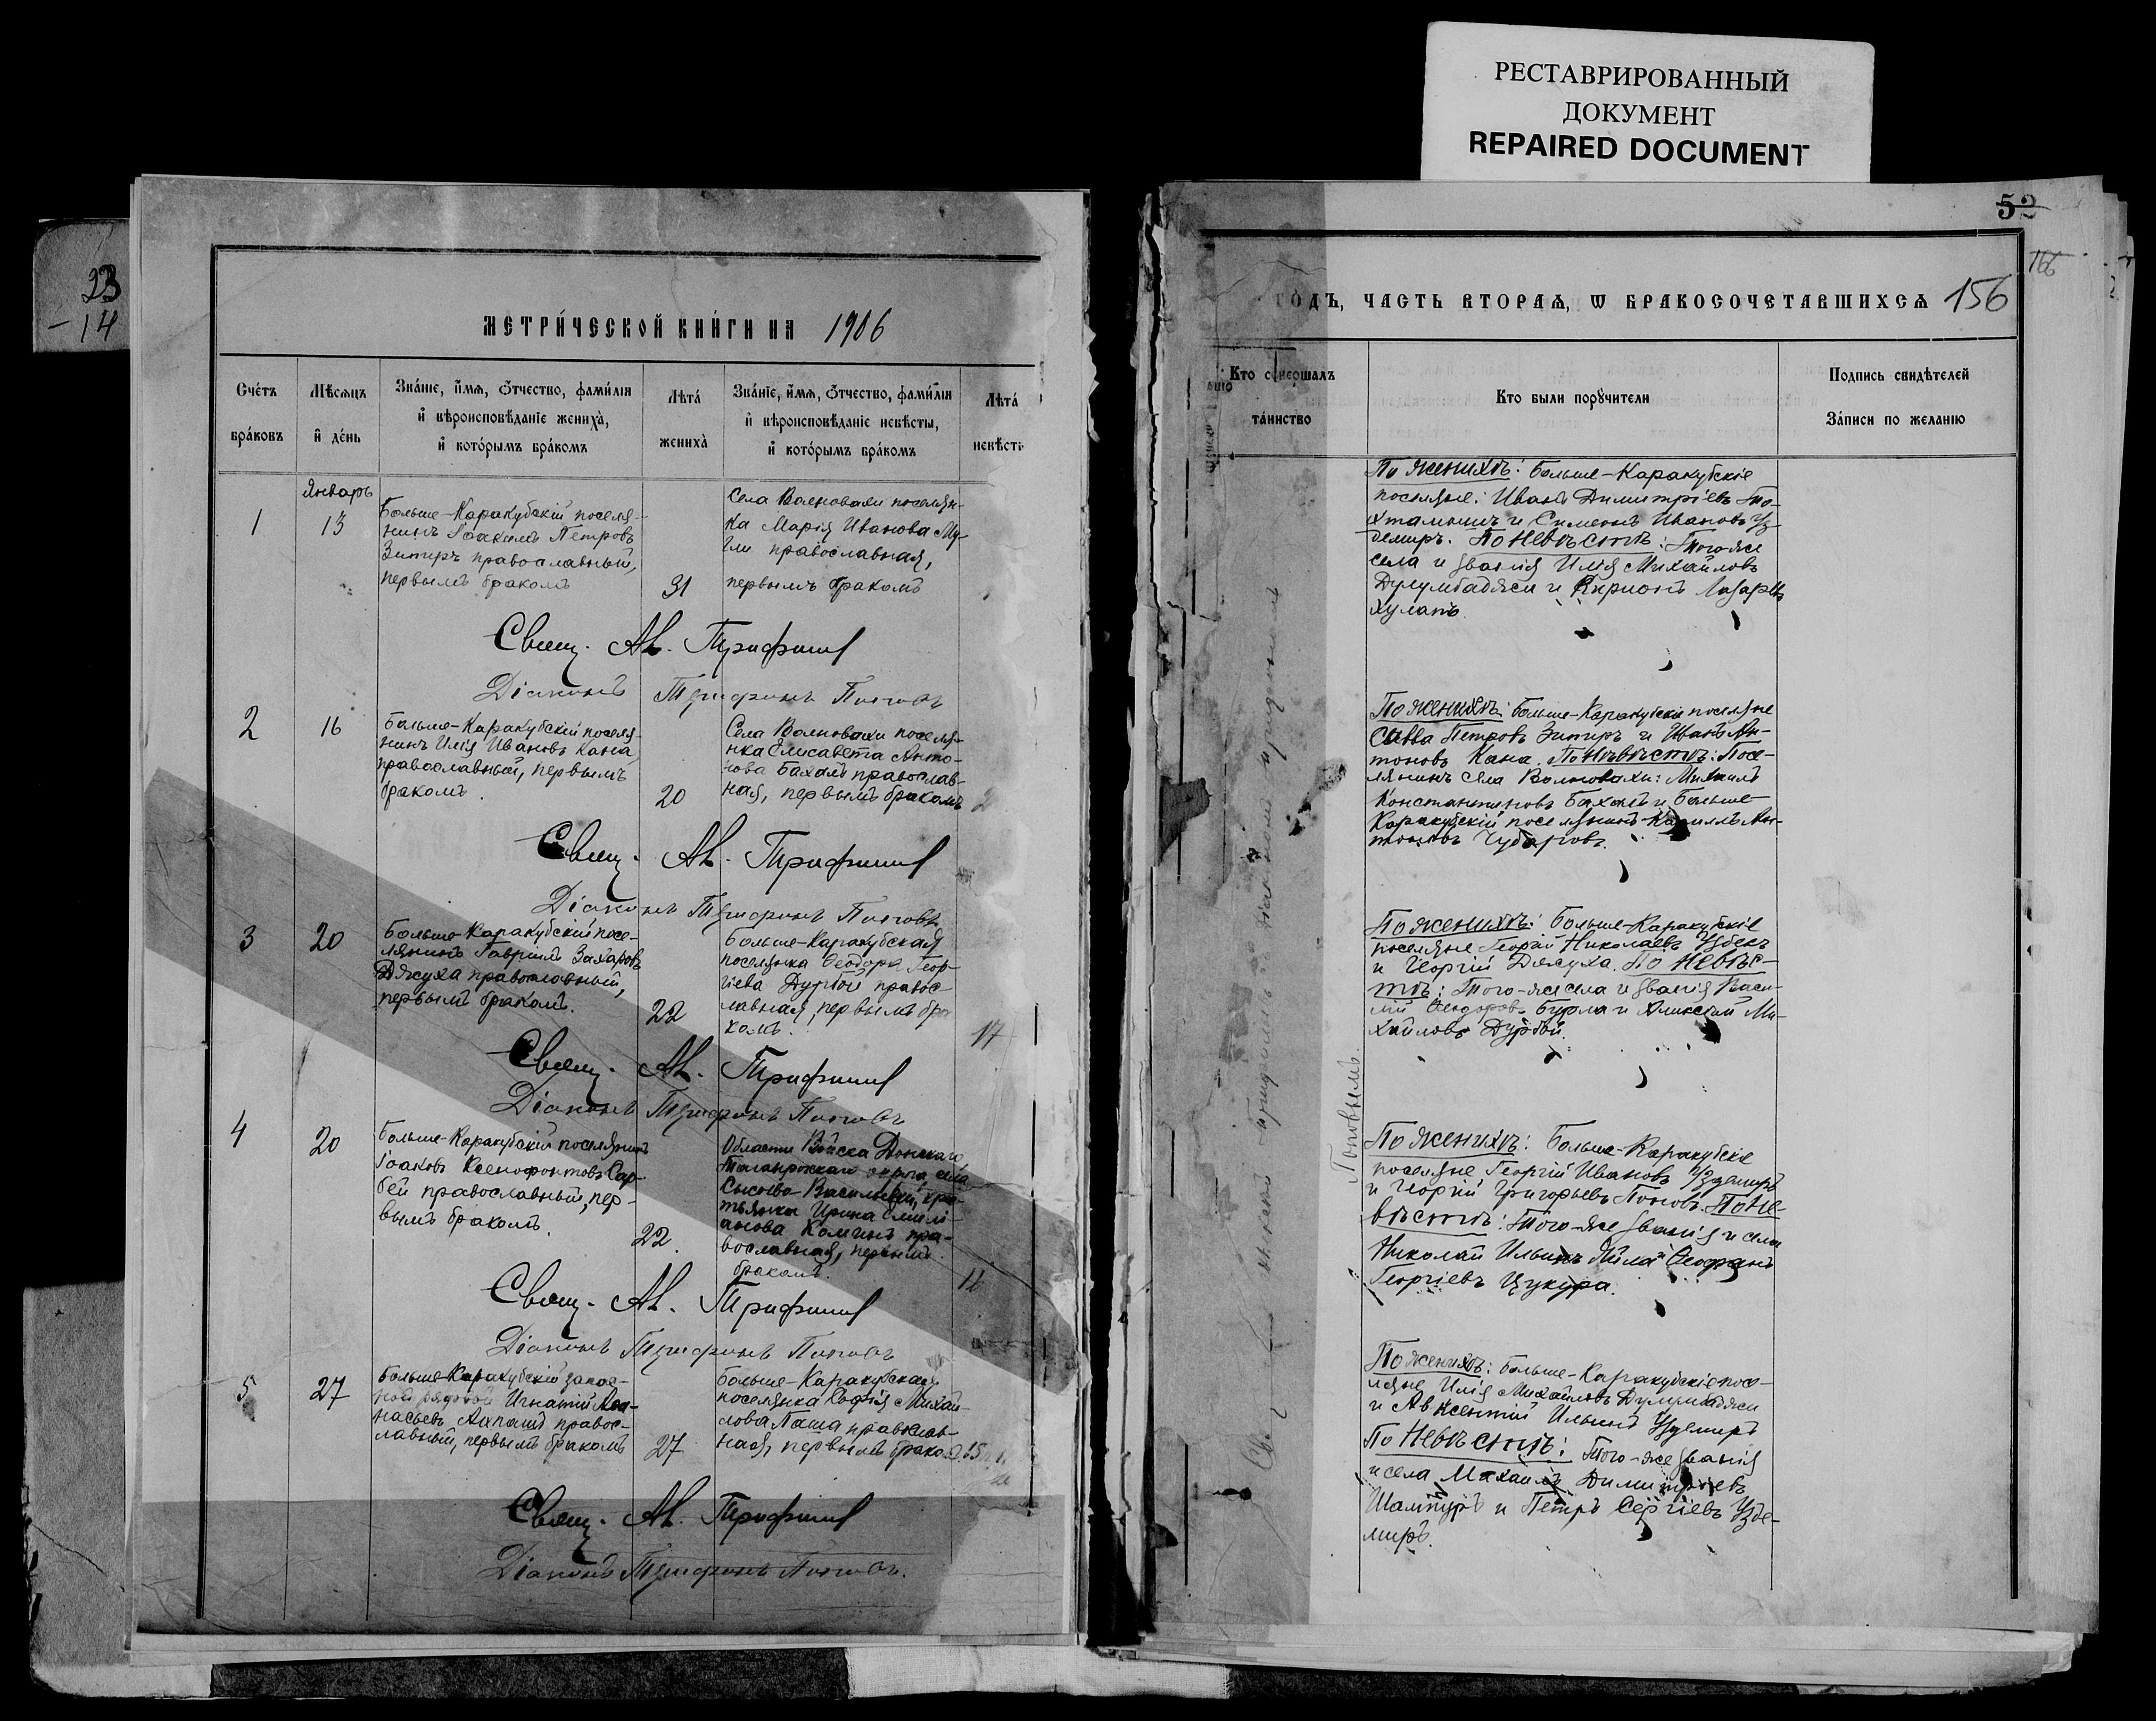 РЕСТАВРИРОВАННЫЙ
ДОКУМЕНТ
REPAIRED DOCUMENT
23
-14
МЕТРИ́ЧЕСКОЙ КНИ́ГИ НА 1906
Сче́тъ
бра́ковъ
Мѣ́сяцъ
и҆ де́нь
Зва́ніе, и҆́мѧ, ѻ҆́тчество, фами́лія
и҆ вѣроисповѣ́даніе жениха̀,
и҆ кото́рымъ бра́комъ
Лѣта́
жениха̀
Зва́ніе, и҆́мѧ, ѻ҆́тчество, фами́лія
и҆ вѣроисповѣ́даніе невѣ́сты,
и҆ кото́рымъ бра́комъ
Лѣта́
невѣ́ст
Январь
1
13
Больше-Каракубскій поселя-
нинъ Іоакимъ Петровъ
Зитиръ православный,
первымъ бракомъ
31
Села Волновахи поселян-
ка Марія Иванова
православная,
первымъ бракомъ
Свящ. Ал. Трифилiй
Діаконъ Трифонъ Поповъ
2
16
Больше-Каракубскій поселя-
нинъ Илія Ивановъ Кана
православный, первымъ
бракомъ.
20
Села Волновахи поселя-
нка Елисавета Анто-
нова Бахалъ православ-
ная, первымъ бракомъ
2
Свящ. Ал. Трифилiй
Діаконъ Трифонъ Поповъ
3
20
Больше-Каракубскій посе-
лянинъ Гавріилъ Захаровъ
Джуха православный,
первымъ бракомъ.
22
Больше-Каракубская
поселянка Ѳеодора Геор-
гіева Дурбой правос-
лавная, первымъ бра
комъ.
17
Свящ. Ал. Трифилiй
Діаконъ Трифонъ Поповъ
4
20
Больше-Каракубскій поселянинъ
Іоаковъ Ксенофонтовъ Сар-
бей православный, пер-
вымъ бракомъ.
22.
Области Войска Донскаго,
Таганрожскаго округа, села
Сысоево-
Ирина Емилі-
анова пра-
вославная, первымъ
бракомъ.
Свящ. Ал. Трифилiй
Діаконъ Трифонъ Поповъ
5
27
Больше-Каракубскій запас-
ной рядовой Игнатій Аѳа-
насьевъ правос-
лавный, первымъ бракомъ
27
Больше-Каракубская
поселянка Софія Михай-
лова Паша православ-
ная, первымъ бракомъ
Свящ. Ал. Трифилiй
Діаконъ Трифонъ Поповъ.
52
166
ГОДЪ, ЧАСТЬ ВТОРАѦ, Ѡ БРАКОСОЧЕТАВШИХСѦ 156
Кто совершалъ
та́инство
Кто были порꙋчители
Подпись свидѣтелей
За́писи по желанію
По женихѣ: Больше-Каракубскіе
поселяне: Иванъ Димитріевъ То-
хтамышъ и Симеонъ Ивановъ Уз-
демиръ. По невѣстѣ: Того же
села и званія Илія Михайловъ
Думумбаджи и Киріонъ Лазаревъ
Хулапъ.
По женихѣ: Больше-Каракубскіе поселяне
Савва Петровъ Зитиръ и Иванъ Ан-
тоновъ Кана. По невѣстѣ: Посе-
лянинъ села Волновахи: Михаилъ
Константиновъ Бахалъ и Больше-
Каракубскій поселянинъ Кириллъ Ан-
тоновъ Чубаровъ.
По женихѣ: Больше-Каракубскіе
поселяне Георгій Николаевъ Узбекъ
и Георгій Джуха. По невѣс-
тѣ: Того-же села и званія Васи-
лій Ѳеодоровъ Бурла и Алексѣй Ми-
хайловъ Дурбой.
Поповымъ.
По женихѣ: Больше-Каракубскіе
поселяне Георгій Ивановъ Уздемиръ
и Георгій Григорьевъ Поповъ. По не-
вѣстѣ: Того-же званія и села
Николай Ильинъ и Ѳеофанъ
Георгіевъ Цукура.
По женихѣ: Больше-Каракубскіе посе-
ляне Илія Михайловъ Думумбаджи
и Авксентій Ильинъ Уздемиръ
По невѣстѣ: Того-же званія
и села Михаилъ Димитріевъ
Шапмуръ и Петръ Сергіевъ Узде-
миръ.